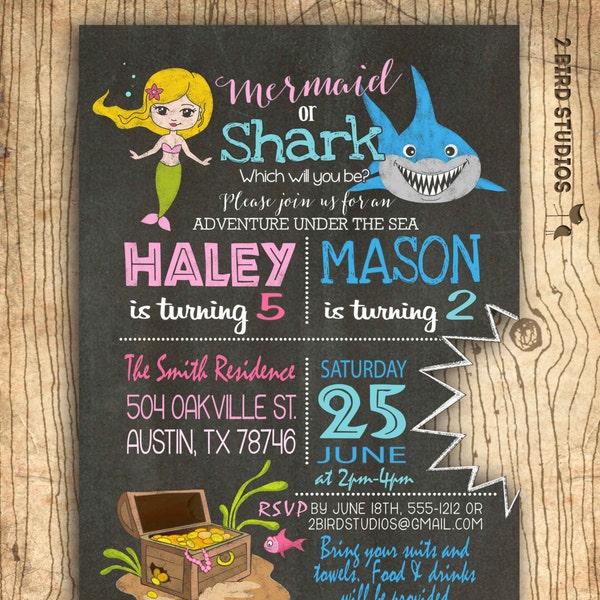 2 BIRD STUDIOS
Mermaid
or
Shark
Which will you be?
Please join us for an
ADVENTURE UNDER THE SEA
HALEY
is turning 5
MASON
is turning 2
The Smith Residence
504 OAKVILLE ST.
AUSTIN, TX 78746
SATURDAY
25
JUNE
at 2pm-4pm
RSVP BY JUNE 18TH, 555-1212 OR
2BIRDSTUDIOS@GMAIL.COM
Bring your suits and
towels. Food & drinks
will be provided